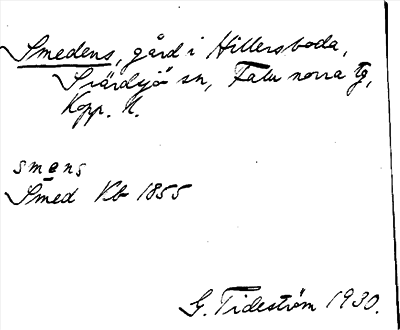 Smedens, gård i Hillersboda,
Svärdsjö sn, Falu norra tg,
Kopp. l.
smens
Smed Kb 1855
G. Tideström 1930.